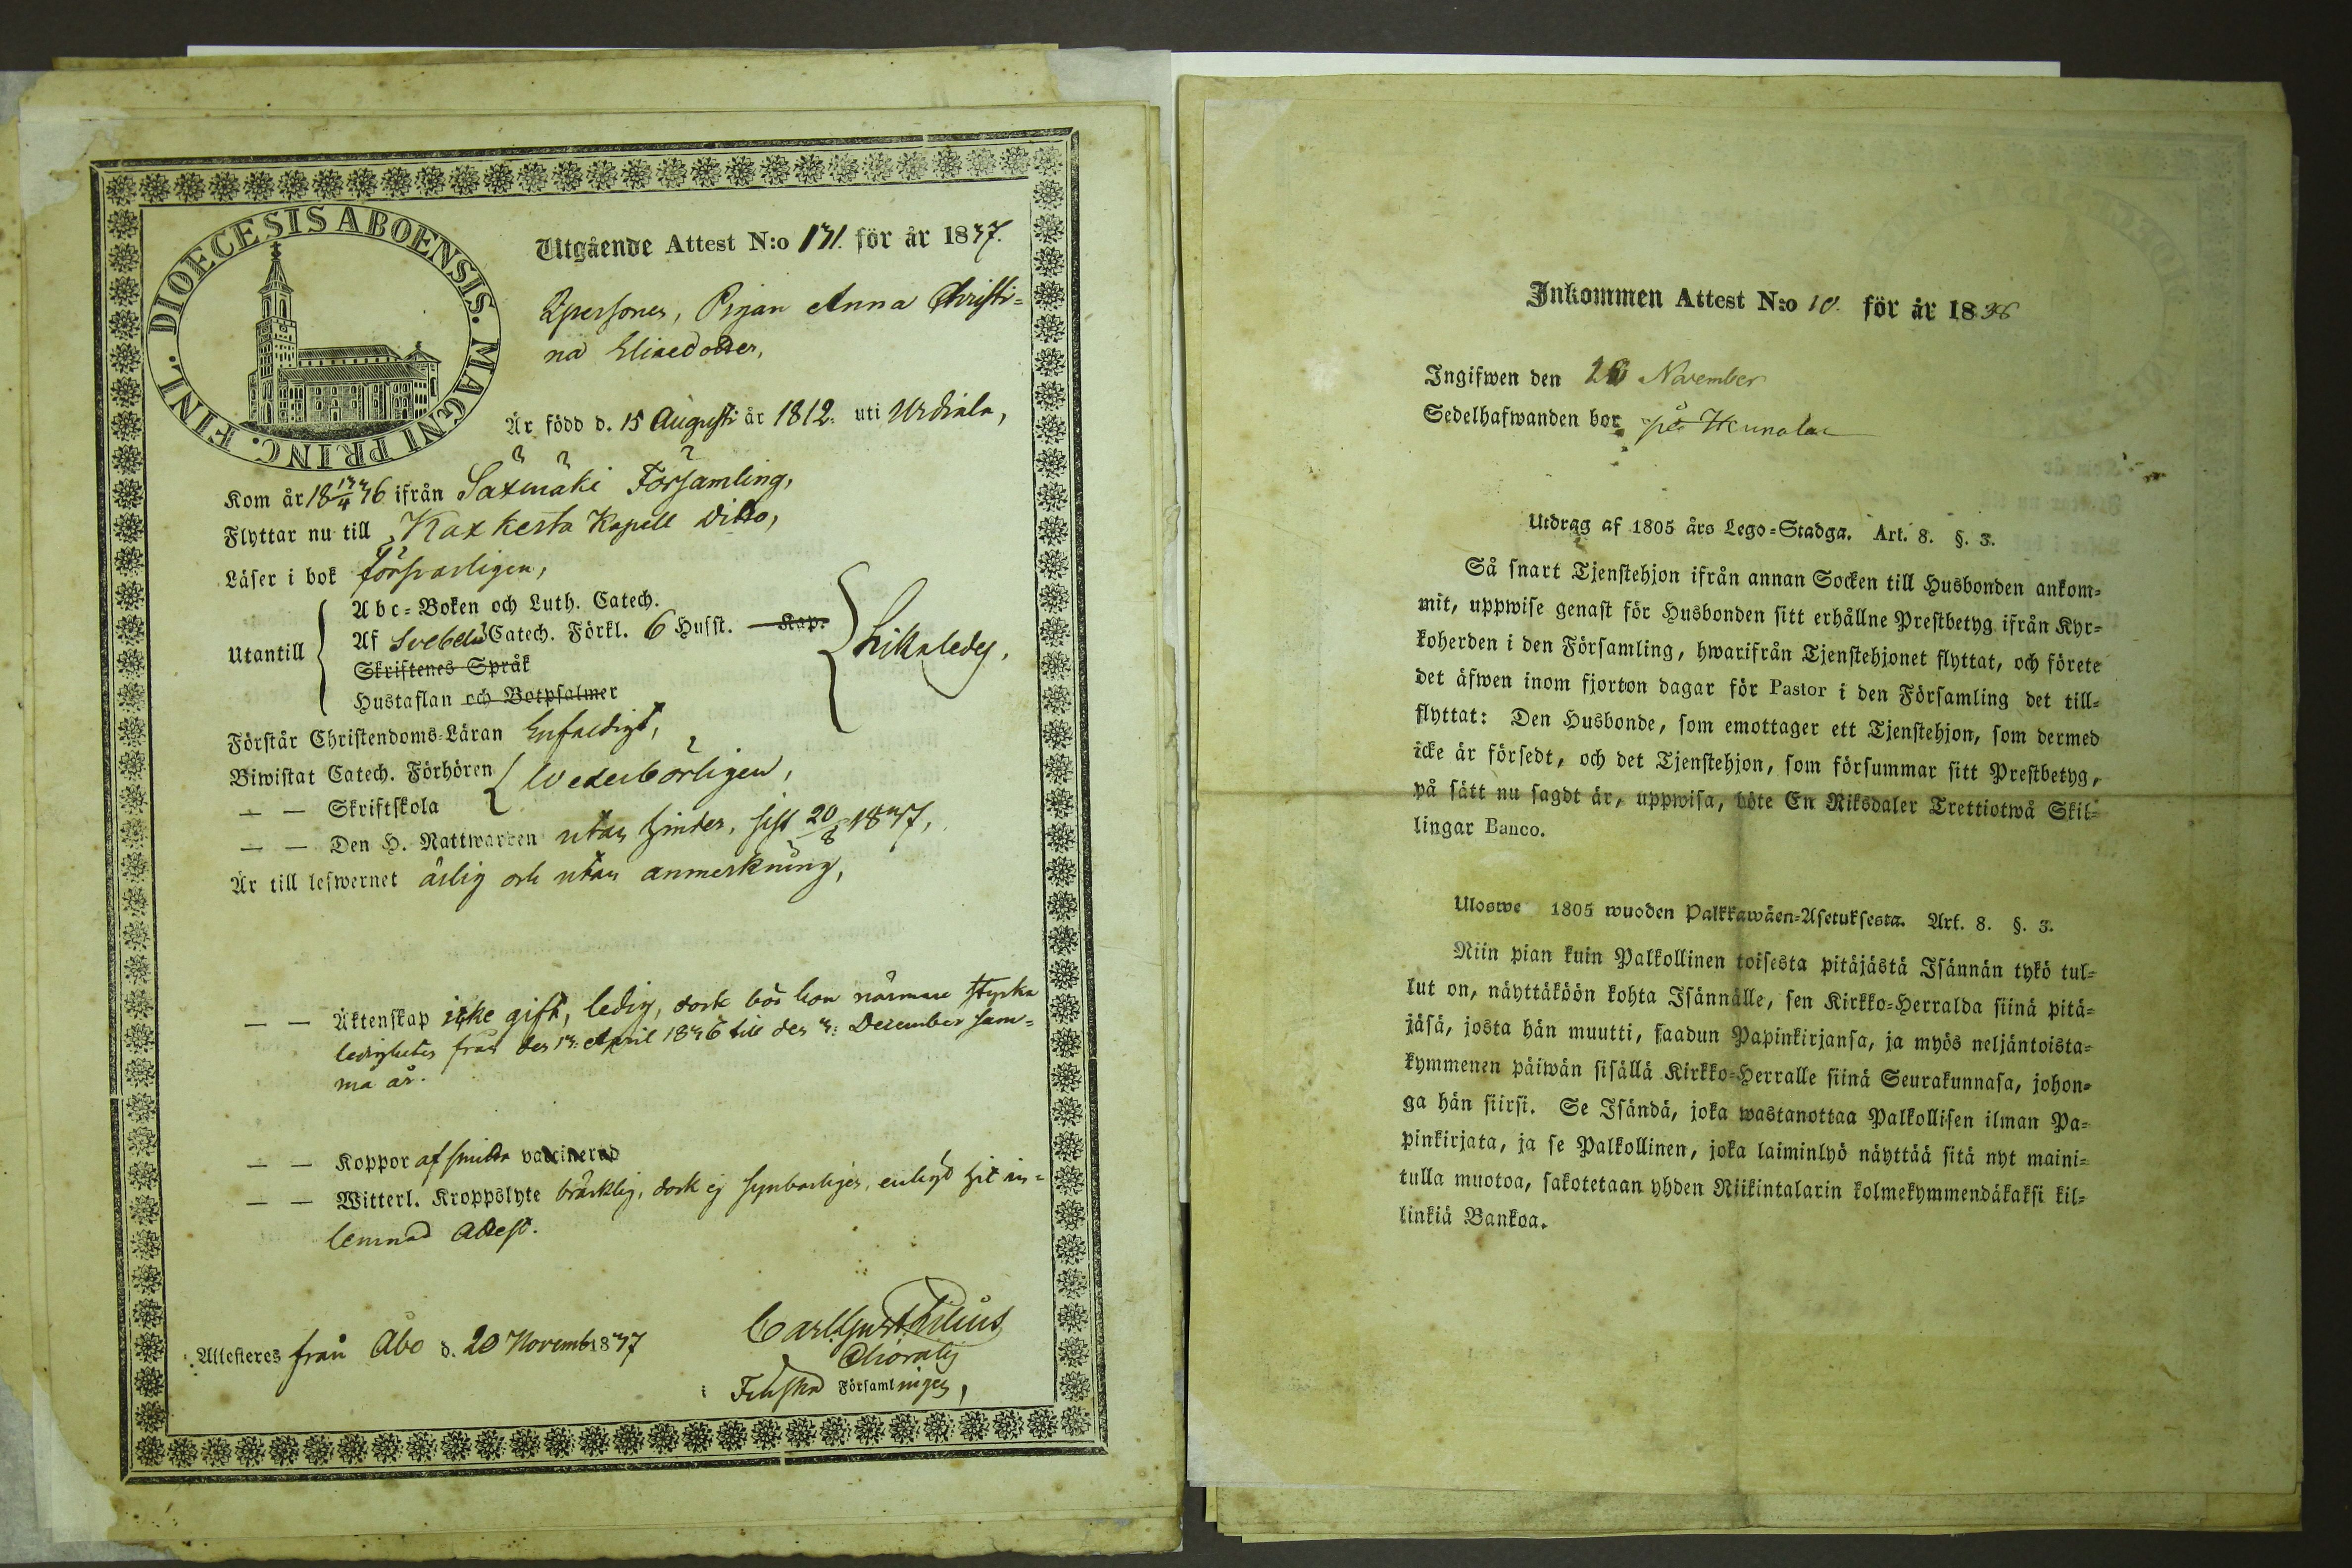 DIOECESIS ABOENSIS. MAGNI PRINC. FINL.
Utgående Attest N:o 131. för år 1837.
Qpersonen, Pigan Anna Christi=
na
Är född d. 15 Augusti år 1812. uti Urdiala,
Kom år 18 13/4 36 ifrån Säxmäki Församling,
Flyttar nu till Kaxkerta Kapell ditto,
Läser i bok försvarligen,
Utantill
Abc-Boken och Luth. Catech.
Af Svebelii Catech. Förkl. 6 Husst. Kap.
Skriftenes Språk
Hustaflan och Botpsalmer
Likaledes,
Förstår Christendoms-Läran Enfaldigt,
Biwistat Catech. Förhören
— — Skriftskola
wederbörligen,
— — Den H. Nattwarden utan hinder, sist 20/8 1837,
Är till lefwernet ärlig och utan anmerkning,
— — Äktenskap icke gift, ledig, dock bör hon närmare styrka
ledigheten från den 13: April 1836 till den 3: December sam=
ma år.
— — Koppor af smitta vaccinerad
— — Witterl. Kroppslyte bräcklig, dock ej synbarligen, enligt hit in=
lemnad Attest.
Attesteres från Åbo d. 20 Novemb 1837
Carl Gust
i Finska Församlningen,
Inkommen Attest N:o 10. för år 1838
Ingifwen den November
Sedelhafwanden bor på
Utdrag af 1805 års Lego-Stadga. Art. 8. §. 3.
Så snart Tjenstehjon ifrån annan Socken till Husbonden ankom=
mit, uppwise genast för Husbonden sitt erhållne Prestbetyg ifrån Kyr=
koherden i den Församling, hwarifrån Tjenstehjonet flyttat, och förete
det äfwen inom fjorton dagar för Pastor i den Församling det till=
flyttat: Den Husbonde, som emottager ett Tjenstehjon, som dermed
icke är försedt, och det Tjenstehjon, som försummar sitt Prestbetyg,
på sätt nu sagdt är, uppwisa, böte En Riksdaler Trettiotwå Skil=
lingar Banco.
Uloswe 1805 wuoden Palkkawäen-Asetuksesta. Art. 8. §. 3.
Niin pian kuin Palkollinen toisesta pitäjästä Isännän tykö tul=
lut on, näyttäköön kohta Isännälle, sen Kirkko-Herralda siinä pitä=
jäsä, josta hän muutti, saadun Papinkirjansa, ja myös neljäntoista=
kymmenen päiwän sisällä Kirkko-Herralle siinä Seurakunnasa, johon=
ga hän siirsi. Se Isändä, joka wastanottaa Palkollisen ilman Pa=
pinkirjata, ja se Palkollinen, joka laiminlyö näyttää sitä nyt maini=
tulla muotoa, sakotetaan yhden Riikintalarin kolmekymmendäkaksi kil=
linkiä Bankoa.